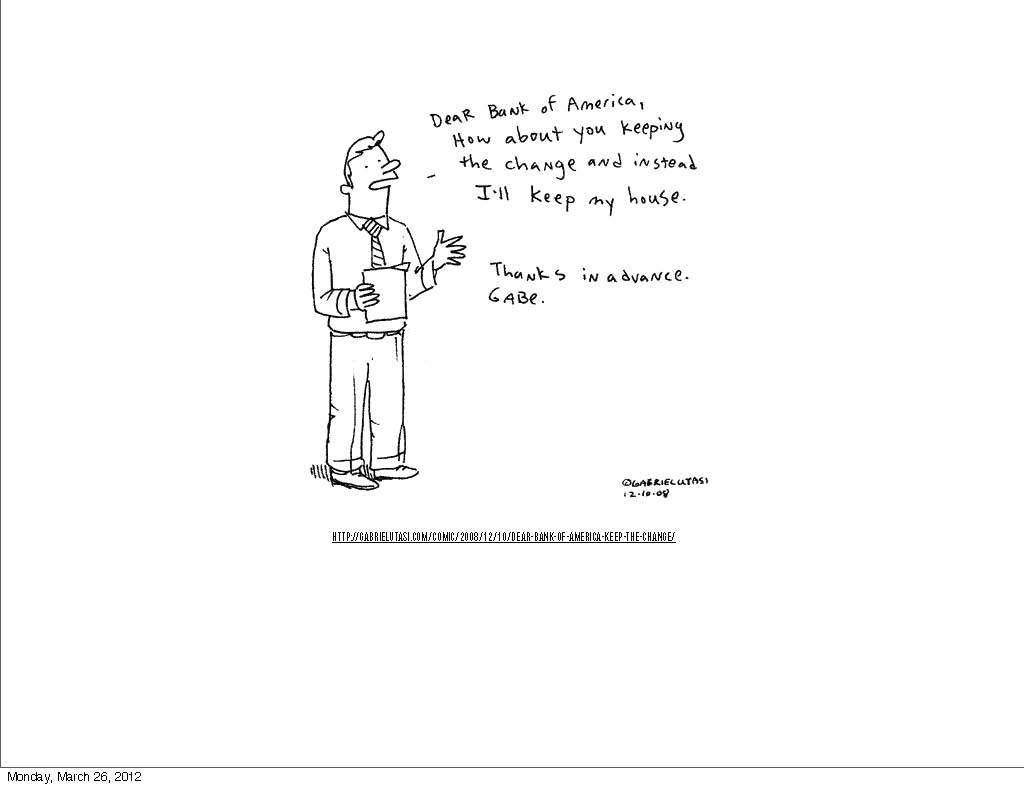 Dear Bank of America,
How about you keeping
the change and instead
I'll keep my house.
Thanks in advance.
Gabe.
©GABRIELUTASI
12.10.08
HTTP://GABRIELUTASI.COM/COMIC/2008/12/10/DEAR-BANK-OF-AMERICA-KEEP-THE-CHANGE/
Monday, March 26, 2012